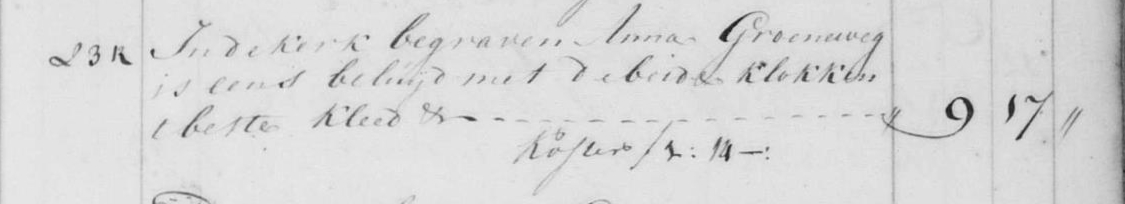 23 K In de kerk begraven Anna Groeneweg
is eens beluijd met de beide klokken
t beste kleed & - - - - - - - - - - " 9 17 "
Koster / 2: 14 -: